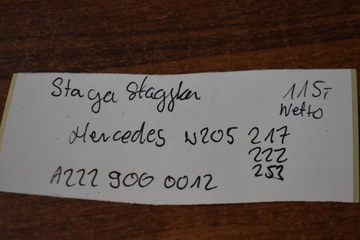 Stacja 115,-
Netto
Mercedes W205 217
222
253
A222 900 0012